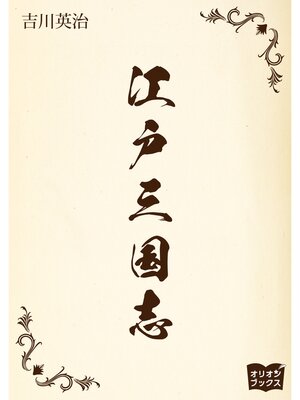 吉川英治
江戸三国志
オリオン
ブックス